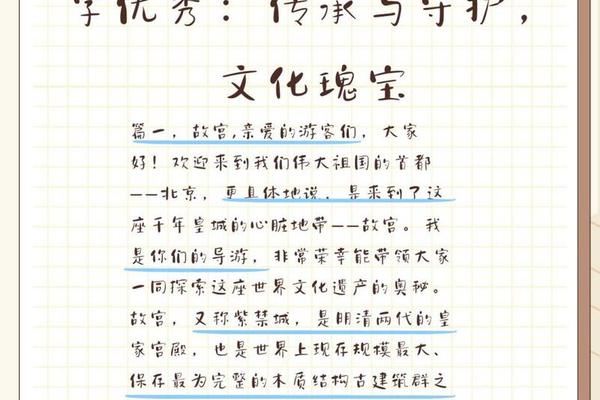 学优秀：传承与守护，
文化瑰宝
篇一，故宫,亲爱的游客们，大家
好！欢迎来到我们伟大祖国的首都
——北京，更具体地说，是来到了这
座千年皇城的心脏地带——故宫。我
是你们的导游，非常荣幸能带领大家
一同探索这座世界文化遗产的奥秘。
故宫，又称紫禁城，是明清两代的皇
家宫殿，也是世界上现存规模最大、
保存最为完整的木质结构古建筑群之